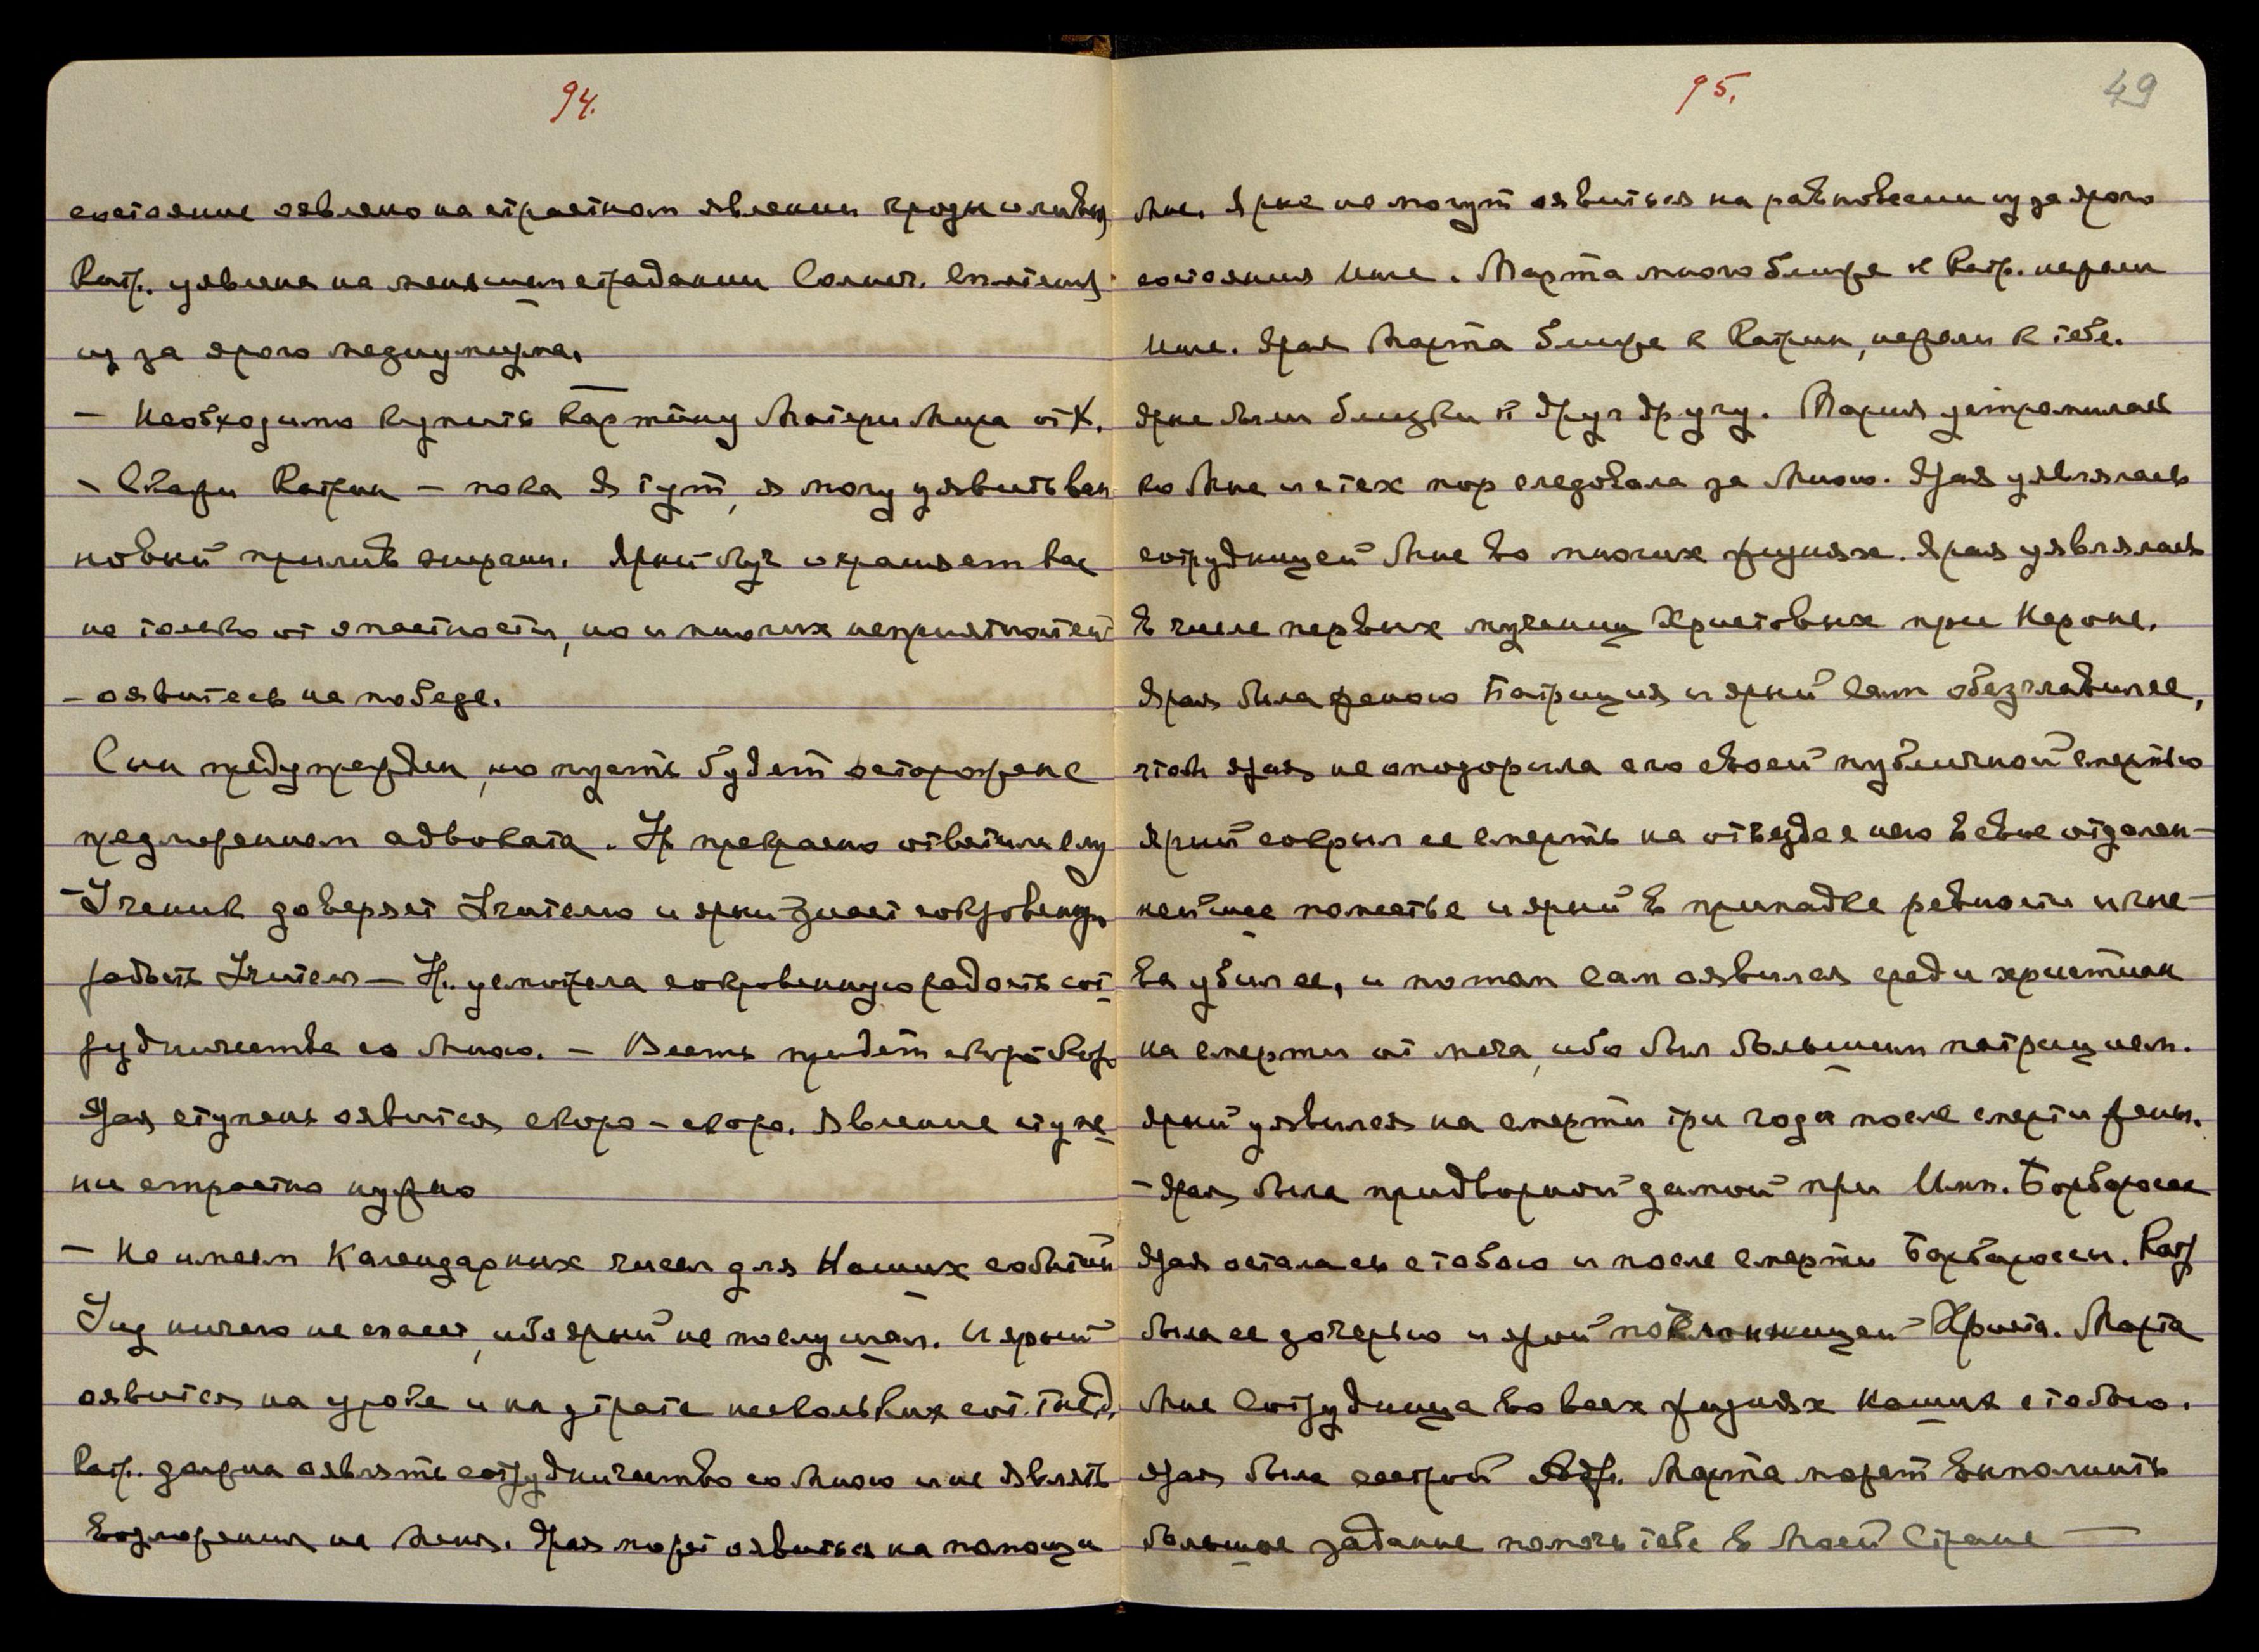 94.
состояние оявлено на страстном явлении грозы и ливня
Катр. уявлена на меньшем страдании Солнеч. Сплетения
из за ярого медиумизма.
– Необходимо купить картину Матери Мира от К.
– Скажи Катрин – пока Я тут, я могу уявить вам
новый прилив энергии. Ярый Луч охраняет вас
не только от опасности, но и многих неприятностей
– оявитесь на победе.
Сын предупрежден, но пусть будет осторожен с
предложением адвоката. Н. прекрасно ответила ему
– Ученик доверяет Учителю и ярый знает сокровенную
радость Учителя – Н. усмотрела сокровенную радость сот
рудничества со Мною. – Весть придет скоро Катр.
Ярая ступень оявится скоро – скоро. Явление ступе
ни страстно нужно
– Не имеем Календарных чисел для Наших событий
Гид ничего не спасет, ибо ярый не послушал. И ярый
оявится на уроне и на утрате нескольких сот. тыс.д.
Катр. должна оявлять сотрудничество со Мною и не являть
возложения на Меня. Ярая может оявиться на помощи
95.
49
Мне. Ярые не могут оявиться на равновесии из за ярого
состояния Инге. Марта много ближе к Катр. нежели
Инге. Ярая Марта ближе к Катрин, нежели к тебе.
Ярые были близки к друг другу. Мария устремилась
ко Мне и с тех пор следовала за Мною. Ярая уявлялась
сотрудницей Мне во многих жизнях. Ярая уявлялась
в числе первых мучениц Христовых при Нероне.
Ярая была женою Патриция и ярый сам обезглавил ее,
чтоб ярая не опозорила его своей публичной смертью
Ярый сокрыл ее смерть на отъезде с нею в свое отдален-
нейшее поместье и ярый в припадке ревности и гне-
ва убил ее, и потом сам оявился среди христиан
на смерти от меча, ибо был большим патрицием.
Ярый уявился на смерти три года после смерти жены.
– Ярая была придворной дамой при Имп. Барбароссе
Ярая осталась с тобою и после смерти Барбароссы. Катр
была ее дочерью и ярой поклонницей Христа. Марта
Мне Сотрудница во всех жизнях Наших с тобою.
Ярая была сестрой Катр. Марта может выполнить
большое задание помочь тебе в Моей Стране —